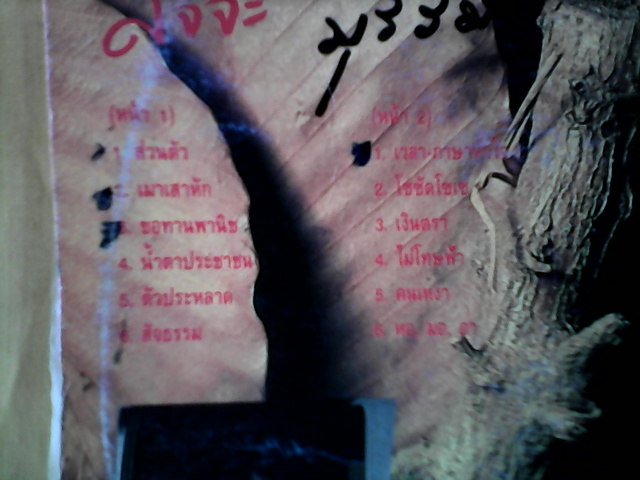 (หน้า 1)
1. ส่วนตัว
2. เมาเสาหัก
3. ขอทานพานิช
4. น้ำตาประชาชน
5. ตัวประหลาด
6. สัจธรรม
(หน้า 2)
1. เวลา-ภาษา
2. โซซัดโซเซ
3. เงินตรา
4. ไม่โทษฟ้า
5. คนเหงา
6.